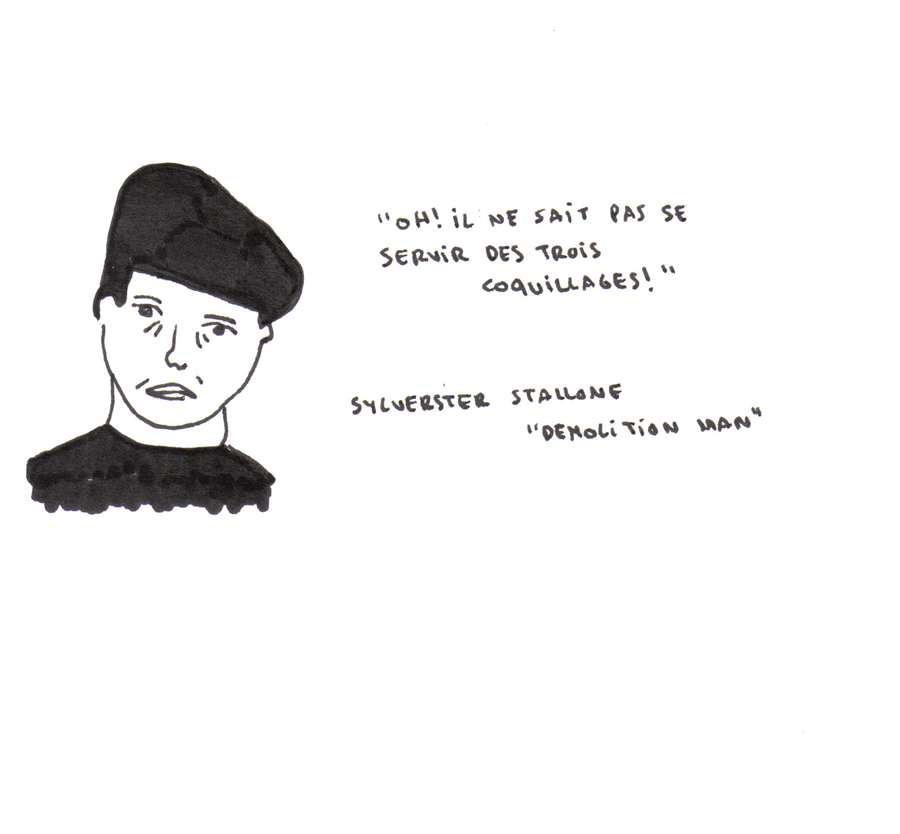 "OH! iL NE SAiT PAS SE
SERViR DES TROiS
COQUiLLAGES!"
SYLVERSTER STALLONE
"DEMOLiTiON MAN"